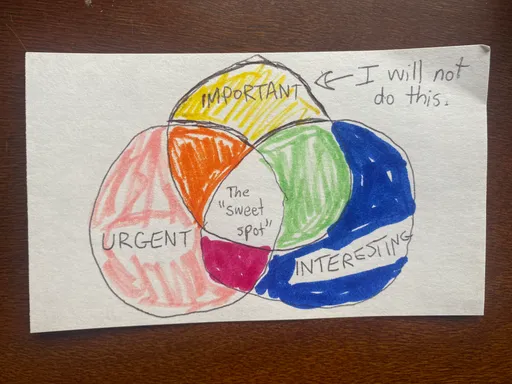 IMPORTANT
I will not
do this.
The
"sweet
spot"
URGENT
INTERESTING